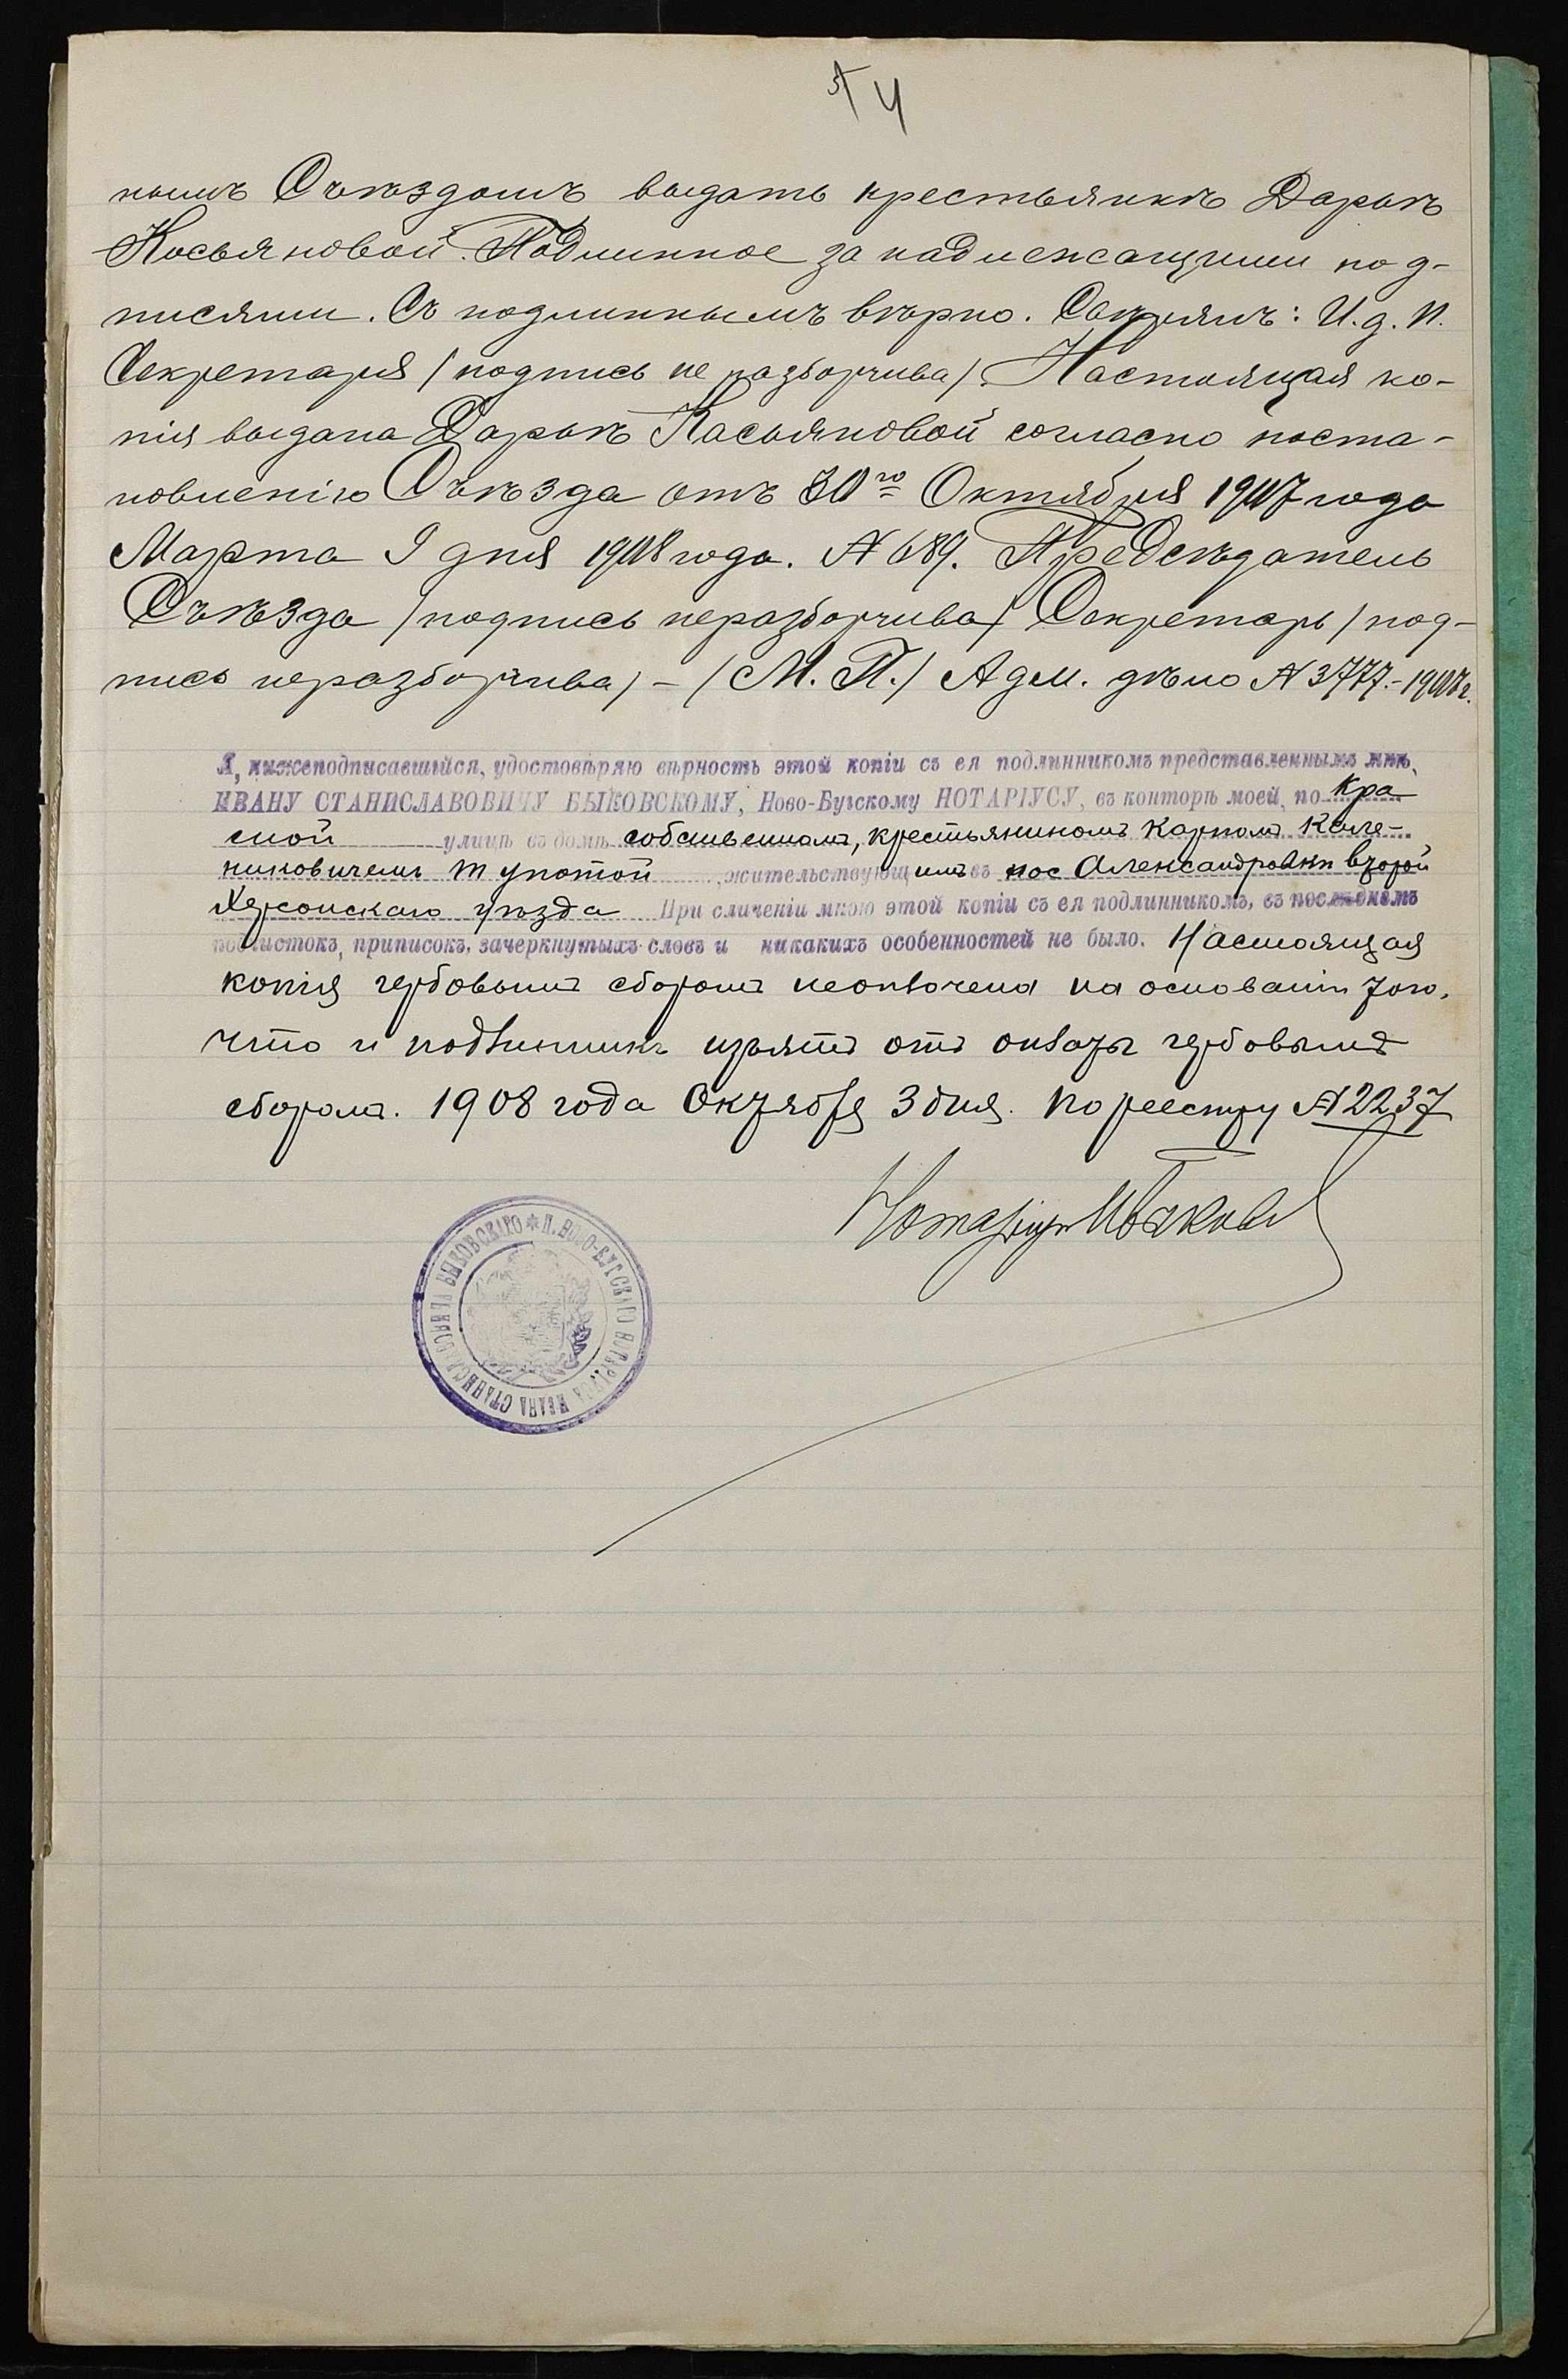 4
нымъ Съѣздомъ выдать крестьянкѣ Дарьѣ
Косьяновой. Подлинное за надлежащими под-
писями. Съ подлиннымъ вѣрно. Скрѣпилъ: И. д. Н.
Секретаря (подпись не разборчива). Настоящая ко-
пія выдана Дарьѣ Касьяновой согласно поста-
новленію Съѣзда отъ 30го Октября 1907 года
Марта 9 дня 1908 года. № 689. Предсѣдатель
Съѣзда (подпись неразборчива) Секретарь (под-
пись неразборчива) - (М. П.) Адм. дѣло № 3777.- 1907г.
Я, нижеподписавшійся, удостовѣряю вѣрность этой копіи съ ея подлинникомъ представленнымъ мнѣ,
ИВАНУ СТАНИСЛАВОВИЧУ БЫКОВСКОМУ, Ново-Бугскому НОТАРІУСУ, въ конторѣ моей, по Кра
сной улицѣ въ домѣ собственномъ, крестьяниномъ Карпомъ
жительствующимъ въ пос Александровкѣ второй
Херсонскаго уѣзда При сличеніи мною этой копіи съ ея подлинникомъ, въ послѣднемъ
подчистокъ, приписокъ, зачеркнутыхъ словъ и никакихъ особенностей не было. Настоящая
копія гербовымъ сборомъ неоплочена на основаніи того,
что и подлинникъ изъятъ отъ оплаты гербовымъ
сборомъ. 1908 года Октября 3 дня. По реестру № 2237
Нотаріусъ
* Н. НОВО-БУГСКАГО НОТАРІУСА ИВАНА СТАНИСЛАВОВИЧА БЫКОВСКАГО